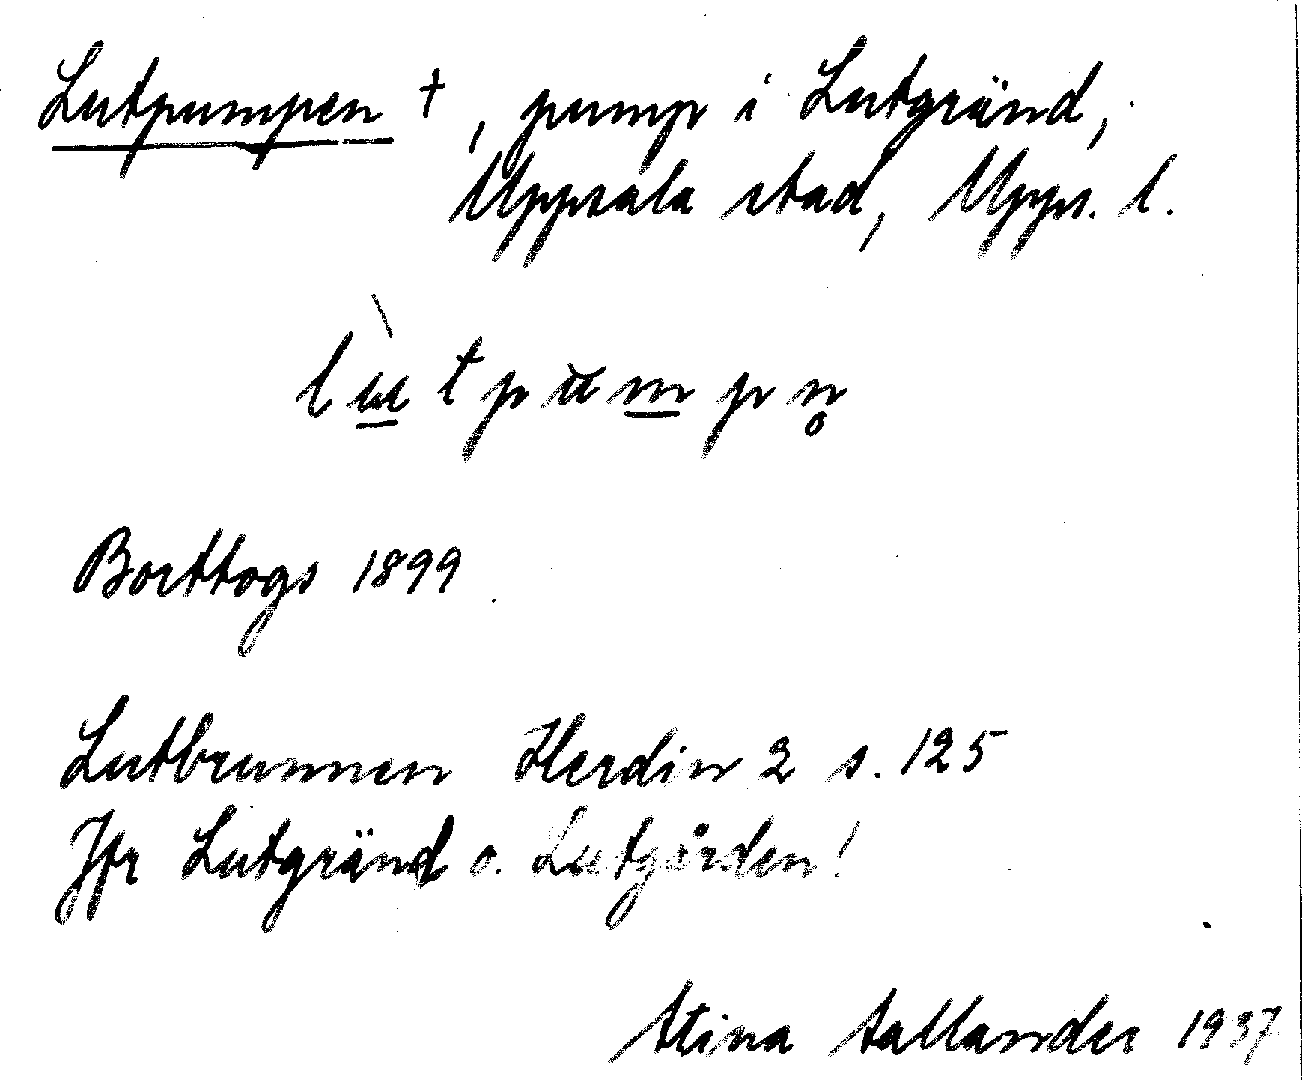 Lutpumpen †, pump i Lutgränd,
Uppsala stad, Upps. l.
lù̲tpŭm̲pn̥
Borttogs 1899
Lutbrunnen Herdin 2 s. 125
Jfr Lutgränd o. Lutgården!
Stina Sallander 1937